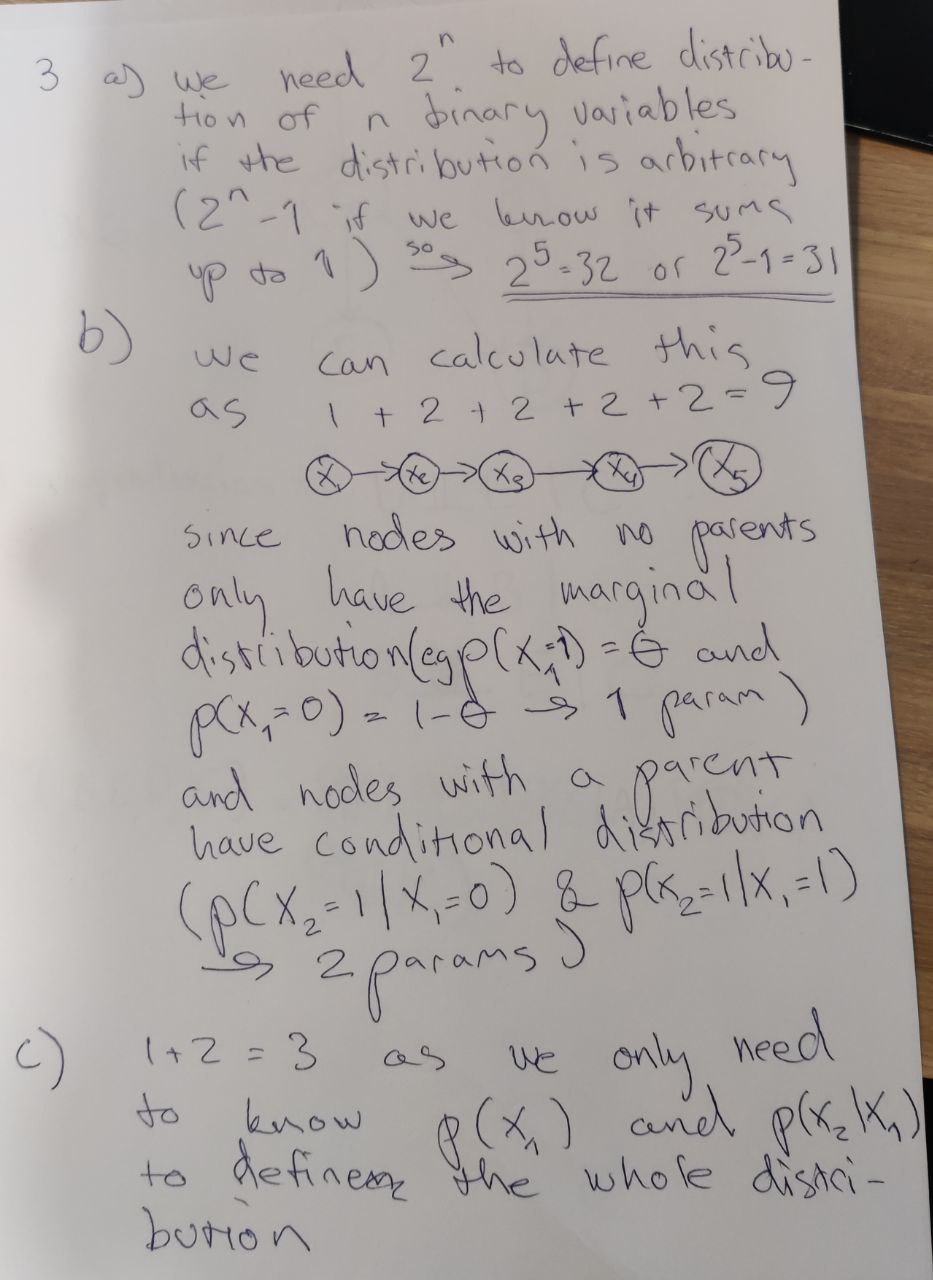 3 a) we need 2ⁿ to define distribu-
tion of n binary variables
if the distribution is arbitrary
(2ⁿ-1 if we know it sums
up to 1) so→ 2⁵=32 or 2⁵-1=31
b) we can calculate this
as 1 + 2 + 2 + 2 + 2 = 9
X₁ → X₂ → X₃ → X₄ → X₅
since nodes with no parents
only have the marginal
distribution(eg p(X₁=1) = θ and
p(X₁=0) = 1-θ → 1 param)
and nodes with a parent
have conditional distribution
(p(X₂=1|X₁=0) & p(X₂=1|X₁=1)
→ 2 params)
c) 1+2 = 3 as we only need
to know p(X₁) and p(X₂|X₁)
to define the whole distri-
bution